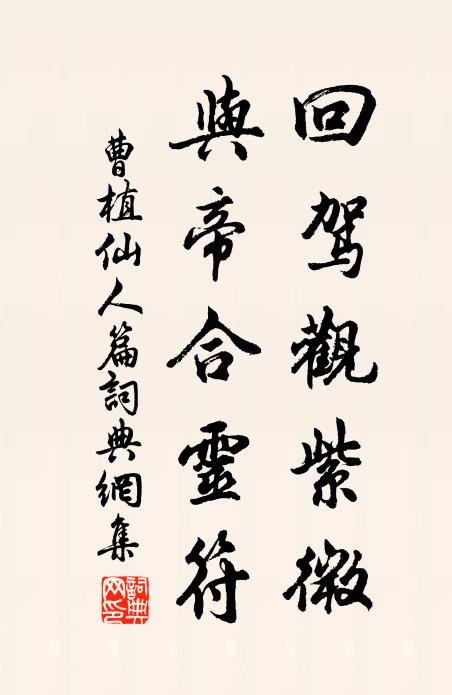 回駕觀紫微
與帝合靈符
曹植仙人篇詞典網集
詞典网印